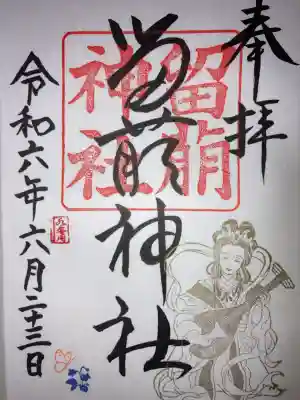 奉拝
留萠神社
留萠神社
令和六年六月二十三日